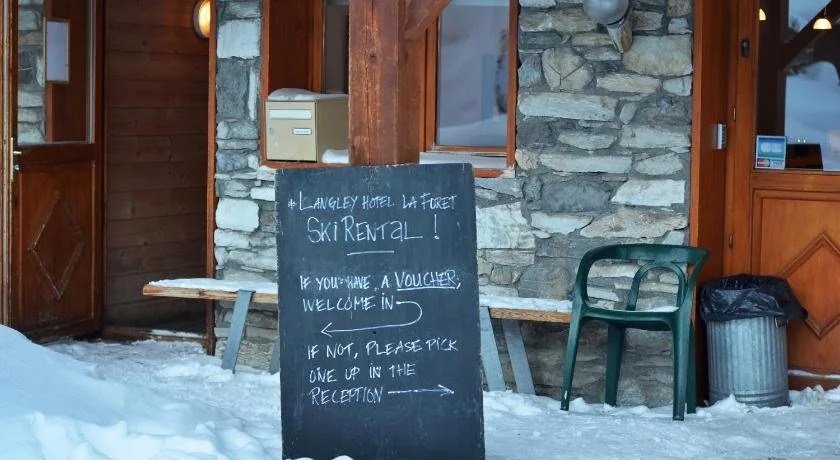 * LANGLEY HOTEL LA FORET
SKI RENTAL !
IF YOU HAVE A VOUCHER,
WELCOME IN
IF NOT, PLEASE PICK
ONE UP IN THE
RECEPTION